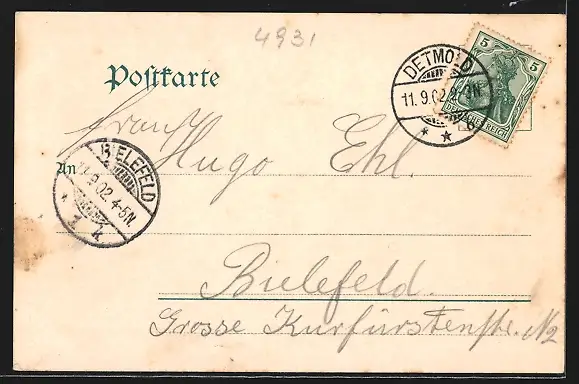 4931
Postkarte
5 5
DEUTSCHES REICH
DETMOLD
11.9.02.
Frau
Hugo Ehl.
An
BIELEFELD
.9.02.4-5N.
Bielefeld.
Grosse Kurfürstenstr.